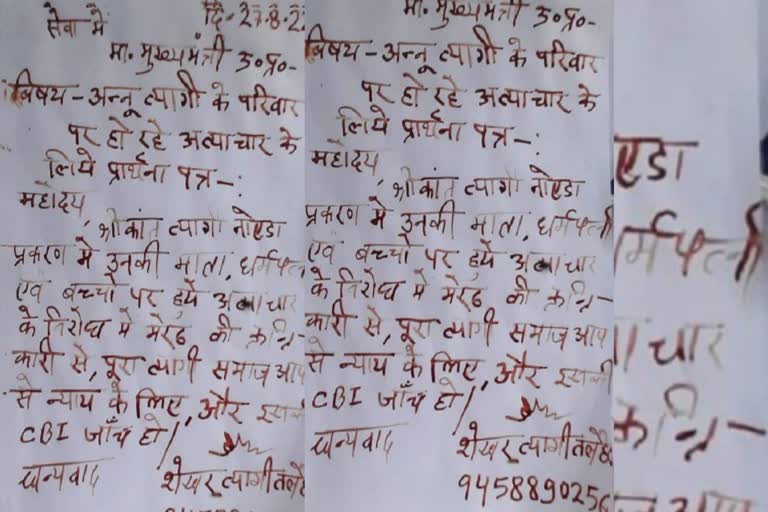 सेवा में
दि-27.8.2
मा. मुख्यमंत्री उ०प्र०-
विषय-अन्नू त्यागी के परिवार
पर हो रहे अत्याचार के
लिये प्रार्थना पत्र-:
महोदय,
श्रीकांत त्यागी नोएडा
प्रकरण में उनकी माता, धर्मपत्न
एवं बच्चों पर हुये अत्याचार
के विरोध में मेरठ की क्रान्ति-
कारी से, पूरा त्यागी समाज आप
से न्याय के लिए, और इसकी
CBI जाँच हो/
धन्यवाद
शेखर त्यागी तलहै
मा. मुख्यमंत्री उ०प्र०-
विषय-अन्नू त्यागी के परिवार
पर हो रहे अत्याचार के
लिये प्रार्थना पत्र-:
महोदय,
श्रीकांत त्यागी नोएडा
प्रकरण में उनकी माता, धर्मपत्नी
एवं बच्चों पर हुये अत्याचार
के विरोध में मेरठ की क्रान्ति-
कारी से, पूरा त्यागी समाज आप
से न्याय के लिए, और इसकी
CBI जाँच हो/
धन्यवाद
शेखर त्यागी तलहै
945889025
एडा
र्मपत्नी
चार
क्रान्ति-